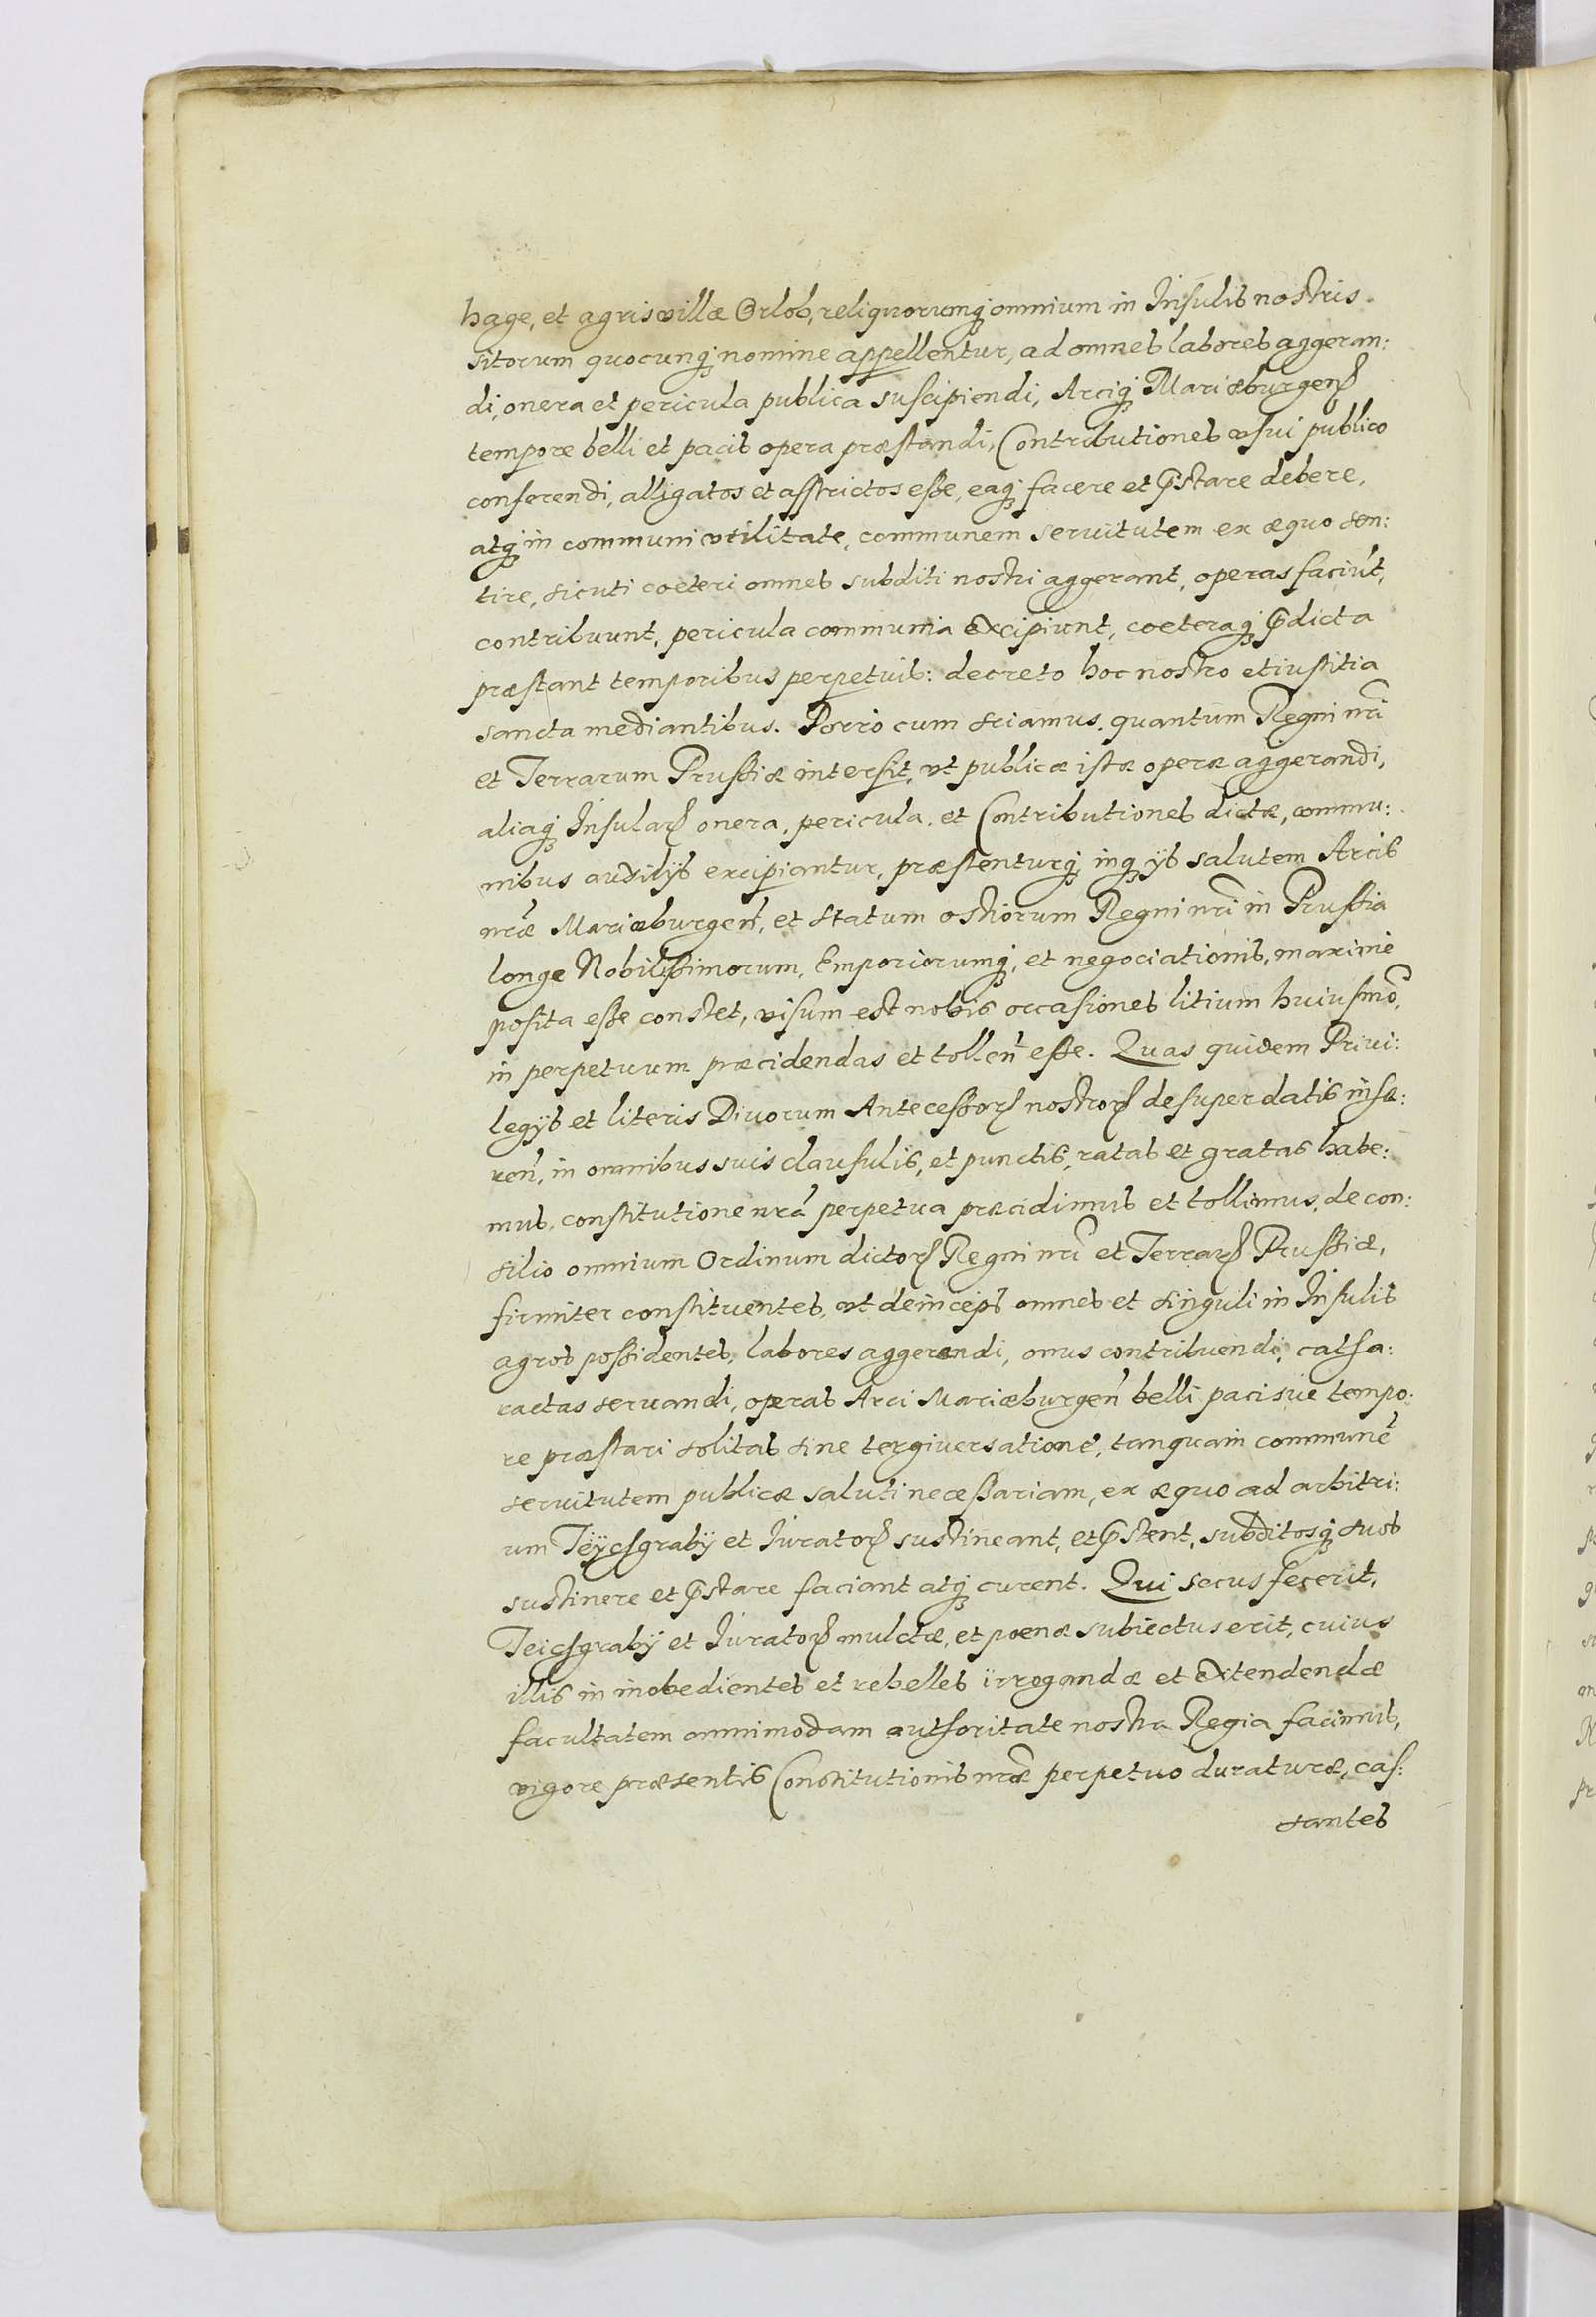 hage, et agris villæ Orlob, reliquorumq́ omnium in Insulis nostris
sitorum quocunq́ nomine appellentur, ad omnes labores aggeran:
di, onera et pericula publica suscipiendi, Arciq́ Mariæburgenꝭ
tempore belli et pacis opera præstandi, Contributiones vsui publico
conferendi, alligatos et asstrictos esse, eaq́ facere et p̃stare debere,
atq́ in communi vtilitate, communem seruitutem ex æquo sen:
tire, sicuti cœteri omnes subditi nostri aggerant, operas faciūt,
contribuunt, pericula communia excipiunt, cœteraq́ p̃dicta
præstant temporibus perpetuis: decreto hoc nostro et iustitia
sancta mediantibus. Porro cum sciamus, quantum Regni nr̃i
et Terrarum Prussiæ intersit, vt publicæ istæ operæ aggerandi,
aliaq́ Insularꝭ onera, pericula, et Contributiones dictæ, commu:
nibus auxilijs excipiantur, præstenturq́, inq́ ijs salutem Arcis
nr̃æ Mariæburgen̄, et statum ostiorum Regni nr̃i in Prussia
longe Nobilissimorum, Emporiorumq́, et negociationis, maxime
posita esse constet, visum est nobis occasiones litium huiusmo᷉,
in perpetuum præcidendas et tollen̄ esse. Quas quidem Priui:
legijs et literis Diuorum Antecessorꝭ nostrorꝭ desuper datis inse:
ren̄, in omnibus suis clausulis, et punctis, ratas et gratas habe:
mus, constitutione nr̃a perpetua præcidimus et tollimus, de con:
silio omnium Ordinum dictorꝭ Regni nr̃i et Terrarꝭ Prussiæ,
firmiter constituentes, vt deinceps omnes et singuli in Insulis
agros possidentes, labores aggerandi, onus contribuendi, catha:
ractas seruandi, operas Arci Mariæburgen̄ belli pacisue tempo:
re præstari solitas sine tergiuersatione, tanquam communē
seruitutem publicæ saluti necessariam, ex æquo ad arbitri:
um Teÿchgrabÿ et Iuratorꝭ sustineant, et p̃stent, subditosq́ suos
sustinere et p̃stare faciant atq́ curent. Qui secus fecerit,
Teichgrabÿ et Iuratorꝭ mulctæ, et poenæ subiectus erit, cuius
illis in inobedientes et rebelles irrogandæ et extendendæ
facultatem omnimodam authoritate nostra Regia facimus,
vigore præsentis Constitutionis nr̃æ perpetuo duraturæ, cas:
santes